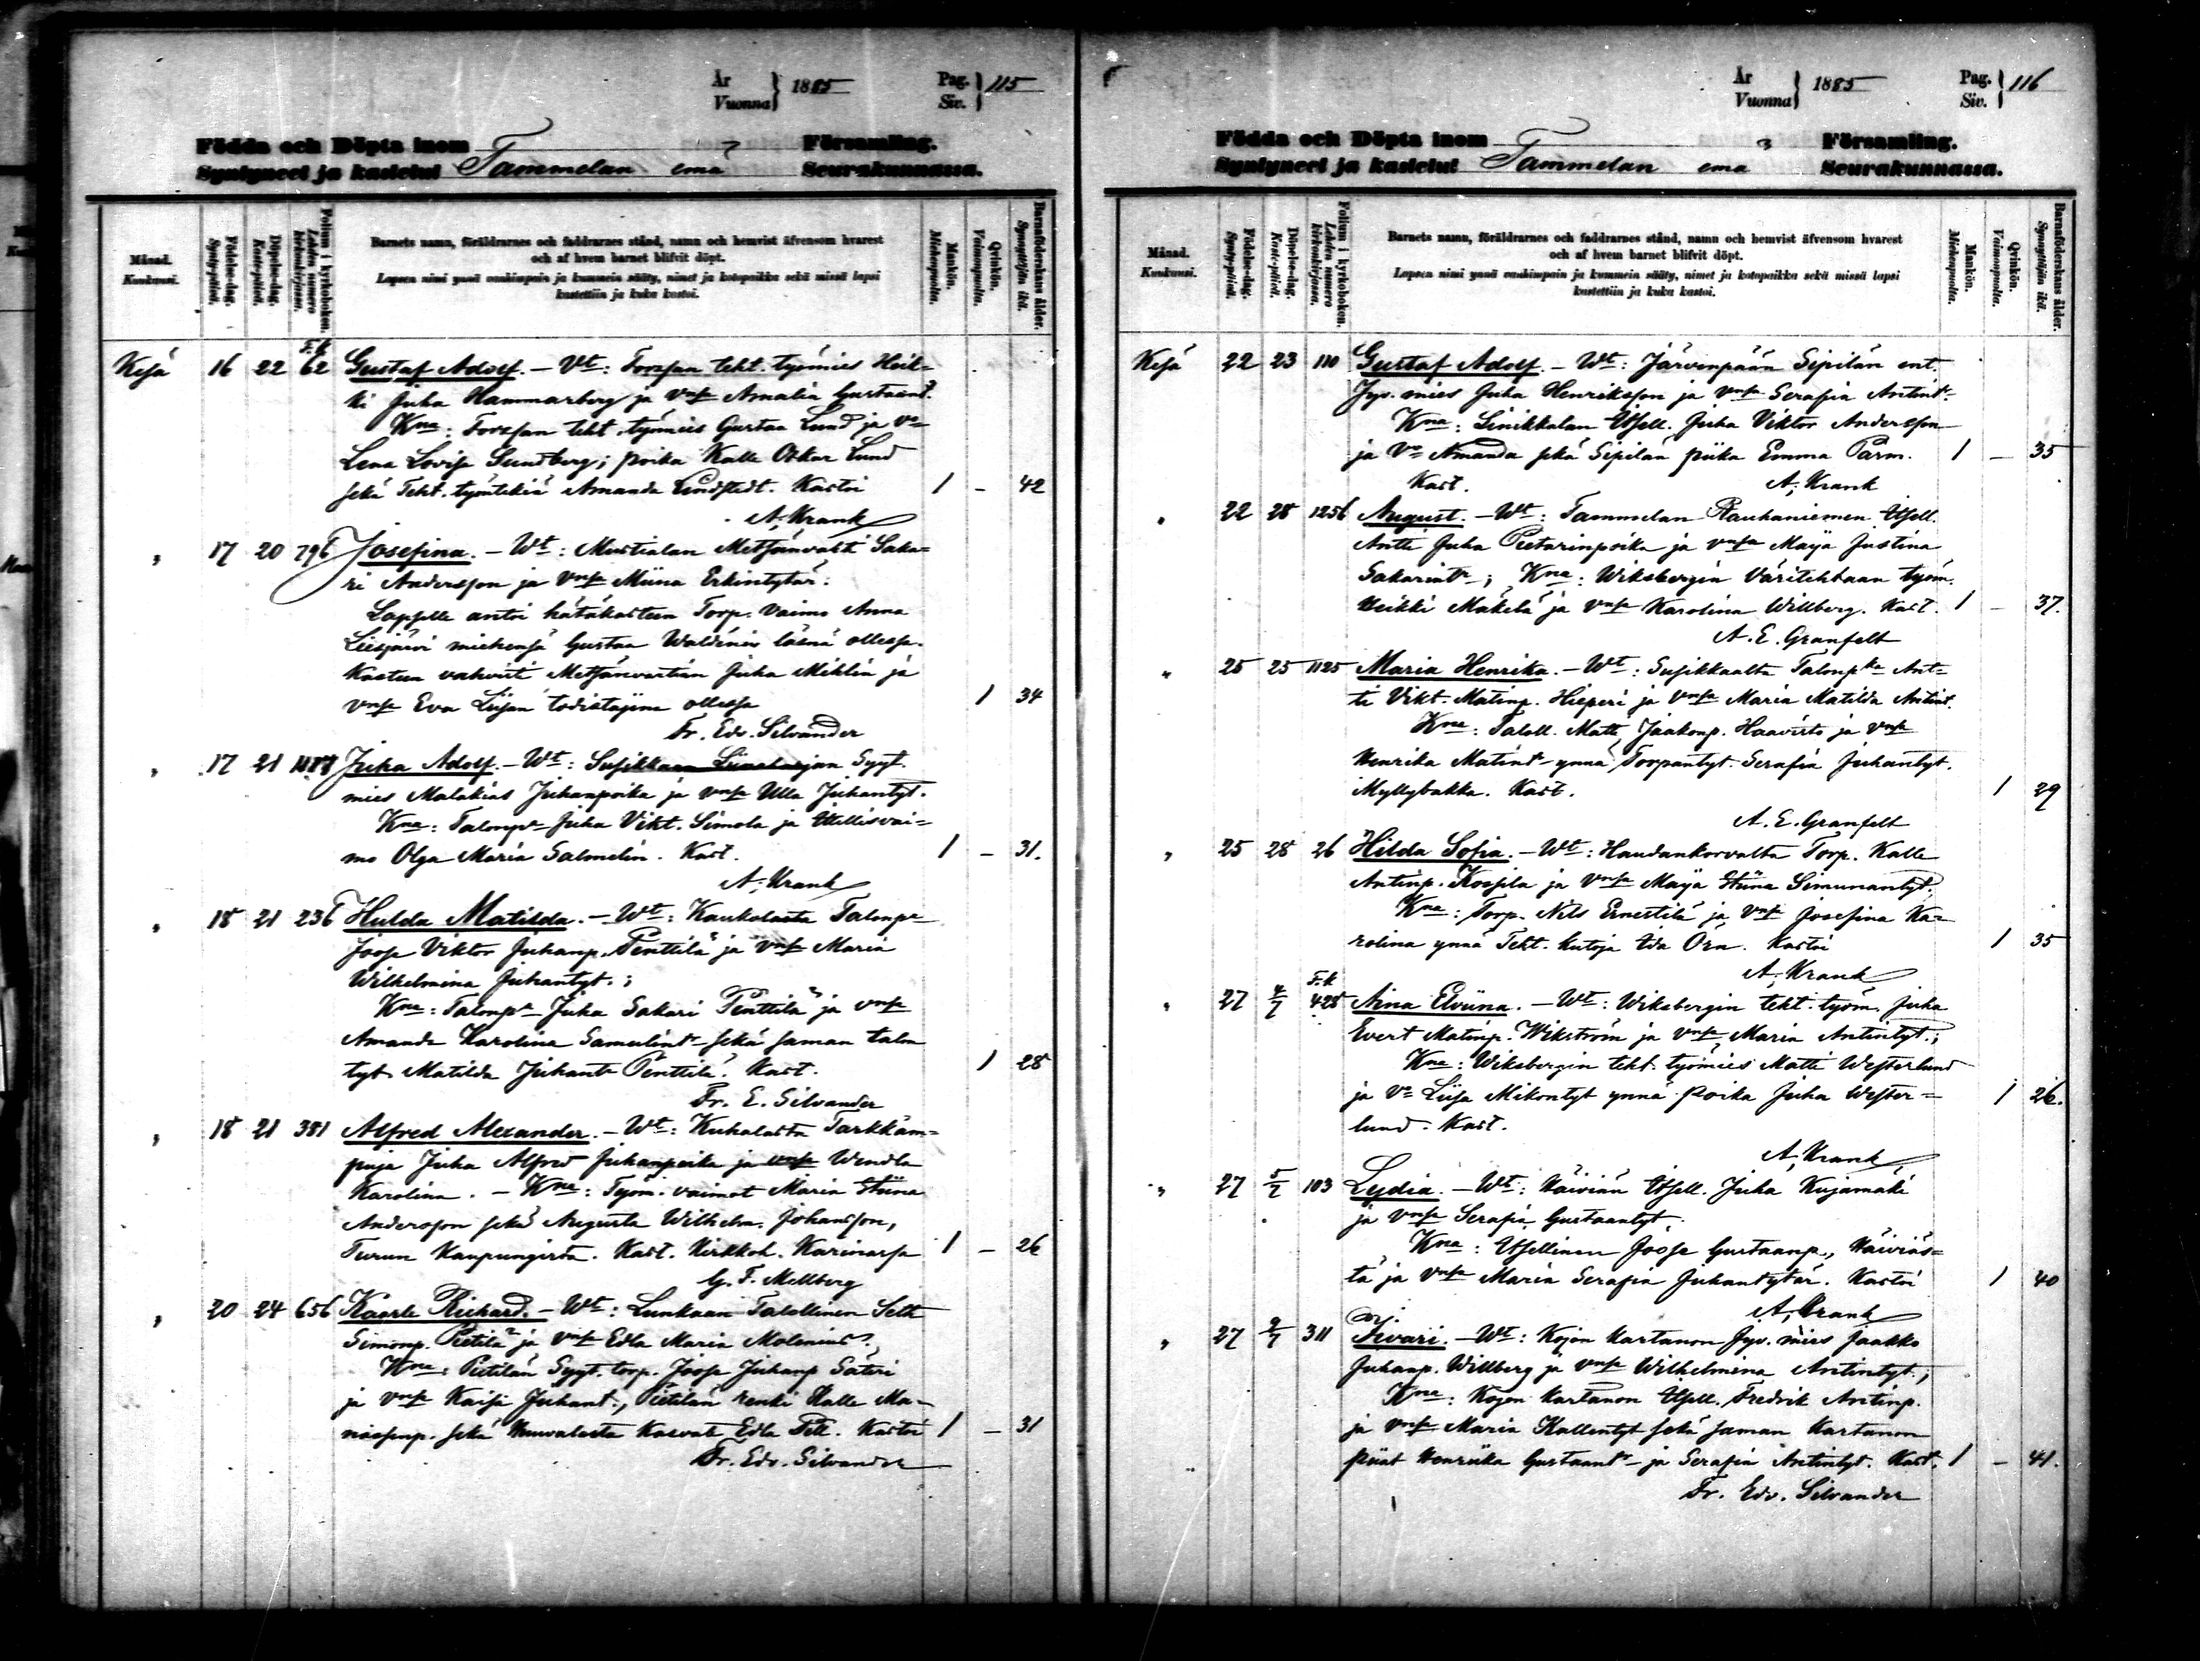 År
Vuonna } 1885 Pag.
Siv. } 115
Födda och Döpta inom Församling.
Syntyneet ja kastetut Tammelan emä Seurakunnassa.
Månad.
Kuukausi.
Födelse-dag.
Synty-päivä.
Döpelse-dag.
Kaste-päivä.
Folium i kyrkoboken.
Lehden numero kirkonkirjassa.
Barnets namn, föräldrarnes och faddrarnes stånd, namn och hemvist äfvensom hvarest
och af hvem barnet blifvit döpt.
Lapsen nimi ynnä vanhimpain ja kummein sääty, nimet ja kotopaikka sekä missä lapsi
kastettiin ja kuka kastoi.
Mankön.
Miehenpuolta.
Qvinkön.
Vaimonpuolta.
Barnaföderskans ålder.
Synnyttäjän ikä.
Kesä 16 22 F.k. 62 Gustaf Adolf. – Wt: Forssan teht. työmies Heik-
ki Juha Hammarberg ja vnsa Amalia Gustaant.
Kna: Forssan teht. työmies Gustaa Lund ja vo
Lena Lovisa Sundberg; poika Kalle Oskar Lund
sekä Teht. työntekiä Amanda Lindstedt. Kastoi 1 – 42
A. Krank
" 17 20 796 Josefina. – Wt: Mustialan Metsänvahti Saka-
ri Andersson ja vnsa Miina Erkintytär.
Lapselle antoi hätäkasteen Torp. vaimo Anna
Liesjärvi miehensä Gustaa Waldenin läsnä ollessa.
Kasteen vahvisti Metsänvartian Juha Miklin ja
vnsa Eva Liisan todistajina ollessa 1 34
Fr. Edv. Silvander
" 17 21 Juha Adolf. – Wt: Susikkaan Syyt.
mies Malakias Juhanpoika ja vnsa Ulla Juhantyt.
Kna: Talonpa Juha Vikt. Simola ja Itsellisvai-
mo Olga Maria Salmelin. Kast. 1 – 31.
A. Krank
" 18 21 236 Hulda Matilda. – Wt: Kaukolasta Talonpa
Joose Viktor Juhanp. Penttilä ja vnsa Maria
Wilhelmina Juhantyt.;
Kna: Talonpa Juha Sakari Penttilä ja vnsa
Amanda Karolina Samulint- sekä saman talon
tyt Matilda Juhant- Penttilä. Kast. 1 28
Fr. E. Silvander
" 18 21 381 Alfred Alexander. – Wt: Kuhalasta Tarkkam-
puja Juha Alfred Juhanpoika ja vnsa Wendla
Karolina. – Kna: Työm. vaimot Maria Stiina
Andersson sekä Augusta Wilhelm. Johansson,
Turun Kaupungista. Kast. Kirkkoh. Karinassa 1 – 26
G. F. Mellberg
" 20 24 656 Kaarle Richard. – Wt: Lunkaan Talollinen Seth
Simonp. Pietilä ja vnsa Edla Maria Molenius;
Kna: Pietilän Syyt. torp. Joose Juhanp Säteri
ja vnsa Kaisa Juhant-, Pietilän renki Kalle Ma-
nassenp. sekä Kasvatti Edla Kastoi 1 – 31
Fr. Edv. Silvander
År
Vuonna } 1885 Pag.
Siv. } 116
Födda och Döpta inom Församling.
Syntyneet ja kastetut Tammelan emä Seurakunnassa.
Månad.
Kuukausi.
Födelse-dag.
Synty-päivä.
Döpelse-dag.
Kaste-päivä.
Folium i kyrkoboken.
Lehden numero kirkonkirjassa.
Barnets namn, föräldrarnes och faddrarnes stånd, namn och hemvist äfvensom hvarest
och af hvem barnet blifvit döpt.
Lapsen nimi ynnä vanhimpain ja kummein sääty, nimet ja kotopaikka sekä missä lapsi
kastettiin ja kuka kastoi.
Mankön.
Miehenpuolta.
Qvinkön.
Vaimonpuolta.
Barnaföderskans ålder.
Synnyttäjän ikä.
Kesä 22 23 110 Gustaf Adolf. – Wt: Järvenpään Sipilän ent.
Jyv. mies Juha Henriksson ja vnsa Serafia Antint-
Kna: Linikkalan Itsell. Juha Viktor Andersson
ja vo Amanda sekä Sipilän piika Emma Parm. 1 – 35
Kast. A. Krank
" 22 28 1256 August. – Wt: Tammelan Rauhaniemen Itsell.
Antti Juha Pietarinpoika ja vnsa Maija Justina
Sakarint-; Kna: Wiksbergin Väritehtaan työm.
Heikki Mäkelä ja vnsa Karolina Willberg. Kast. 1 – 37.
A. E. Granfelt
" 25 25 1125 Maria Henrika. – Wt: Susikkaalta Talonpka Ant-
ti Vikt. Matinp. Hieperi ja vnsa Maria Matilda Antint.
Kna: Taloll. Matti Jaakonp. Haavisto ja vnsa
Henrika Matint- ynnä Torpantyt. Serafia Juhantyt.
Myllybakka. Kast. 1 29
A. E. Granfelt
" 25 28 26 Hilda Sofia. – Wt: Haudankorvalta Torp. Kalle
Antinp. Kossila ja vnsa Maija Stiina Simunantyt.
Kna: Torp. Nels Ernestilä ja vnsa Josefina Ka-
rolina ynnä Teht. kutoja Ida Örn. Kastoi 1 35
A. Krank
" 27 4/7 F.k 428 Aina Elviina. – Wt: Wiksbergin teht. työm. Juha
Evert Matinp. Wikström ja vnsa Maria Antintyt.;
Kna: Wiksbergin teht. työmies Matti Westerlund
ja vo Liisa Mikontyt ynnä poika Juha Wester-
lund. Kast. 1 26.
A. Krank
" 27 5/7 103 Lydia. – Wt: Häiviän Itsell. Juha Kujamäki
ja vnsa Serafia Gustaantyt.
Kna: Itsellinen Joose Gustaanp., Häiviäs-
tä ja vnsa Maria Serafia Juhantytär. Kastoi 1 40
A. Krank
" 27 9/7 311 Iivari. – Wt: Kojon kartanon Jyv. mies Jaakko
Juhanp. Willberg ja vnsa Wilhelmina Antintyt.;
Kna: Kojon kartanon Itsell. Fredrik Antinp.
ja vnsa Maria Kallentyt sekä saman Kartanon
piiat Henriika Gustaant- ja Serafia Antintyt. Kast. 1 – 41.
Fr. Edv. Silvander